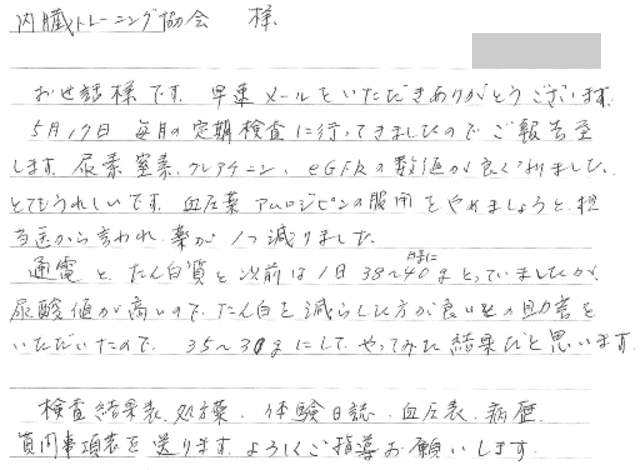 内臓トレーニング協会 様
お世話様です。早速メールをいただきありがとうございます。
5月17日 毎月の定期検査に行ってきましたのでご報告至
します。尿素窒素、クレアチニン、eGFRの数値が良くなりました。
とてもうれしいです。血圧薬アムロジピンの服用をやめましょうと、担
当医から言われ、薬が1つ減りました。
通電と、たん白質を以前は1日38〜40gとっていましたが、
日々に
尿酸値が高いので、たん白を減らした方が良いとの助言を
いただいたので、35〜30gにして、やってみた結果だと思います。
検査結果表、処方薬、体験日誌、血圧表、病歴、
質問事項表を送ります。よろしくご指導お願いします。